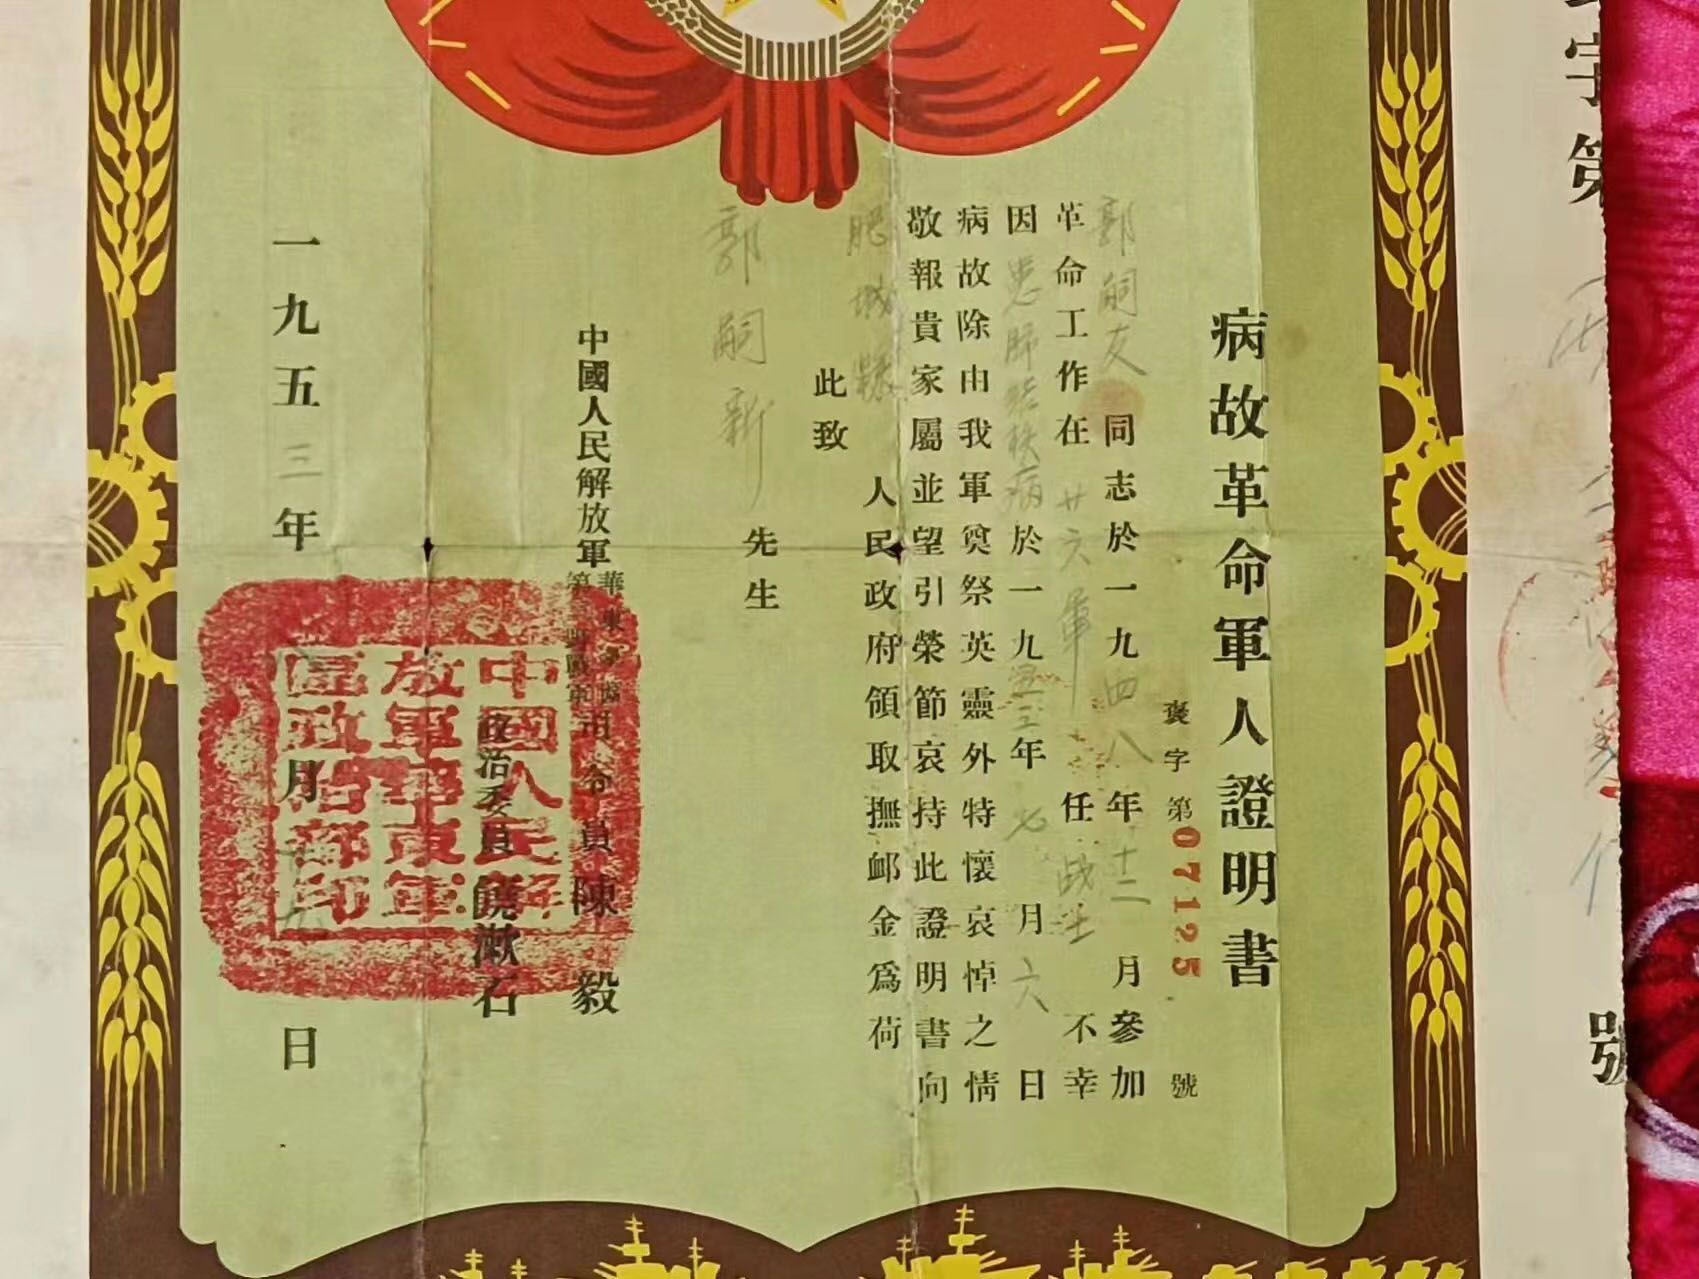 字第
號
病故革命軍人證明書
褒字第07125號
郭嗣友同志於一九四八年十二月參加
革命工作在廿六軍任战士不幸
因患肺结核病於一九五三年 月六日
病故除由我軍奠祭英靈外特懷哀悼之情
敬報貴家屬並望引榮節哀持此證明書向
肥城縣人民政府領取撫卹金爲荷
此致
郭嗣新先生
中國人民解放軍
華東軍區
第三野戰軍
司令員陳毅
政治委員饒漱石
一九五三年 月 日
中國人民解
放軍華東軍
區政治部印